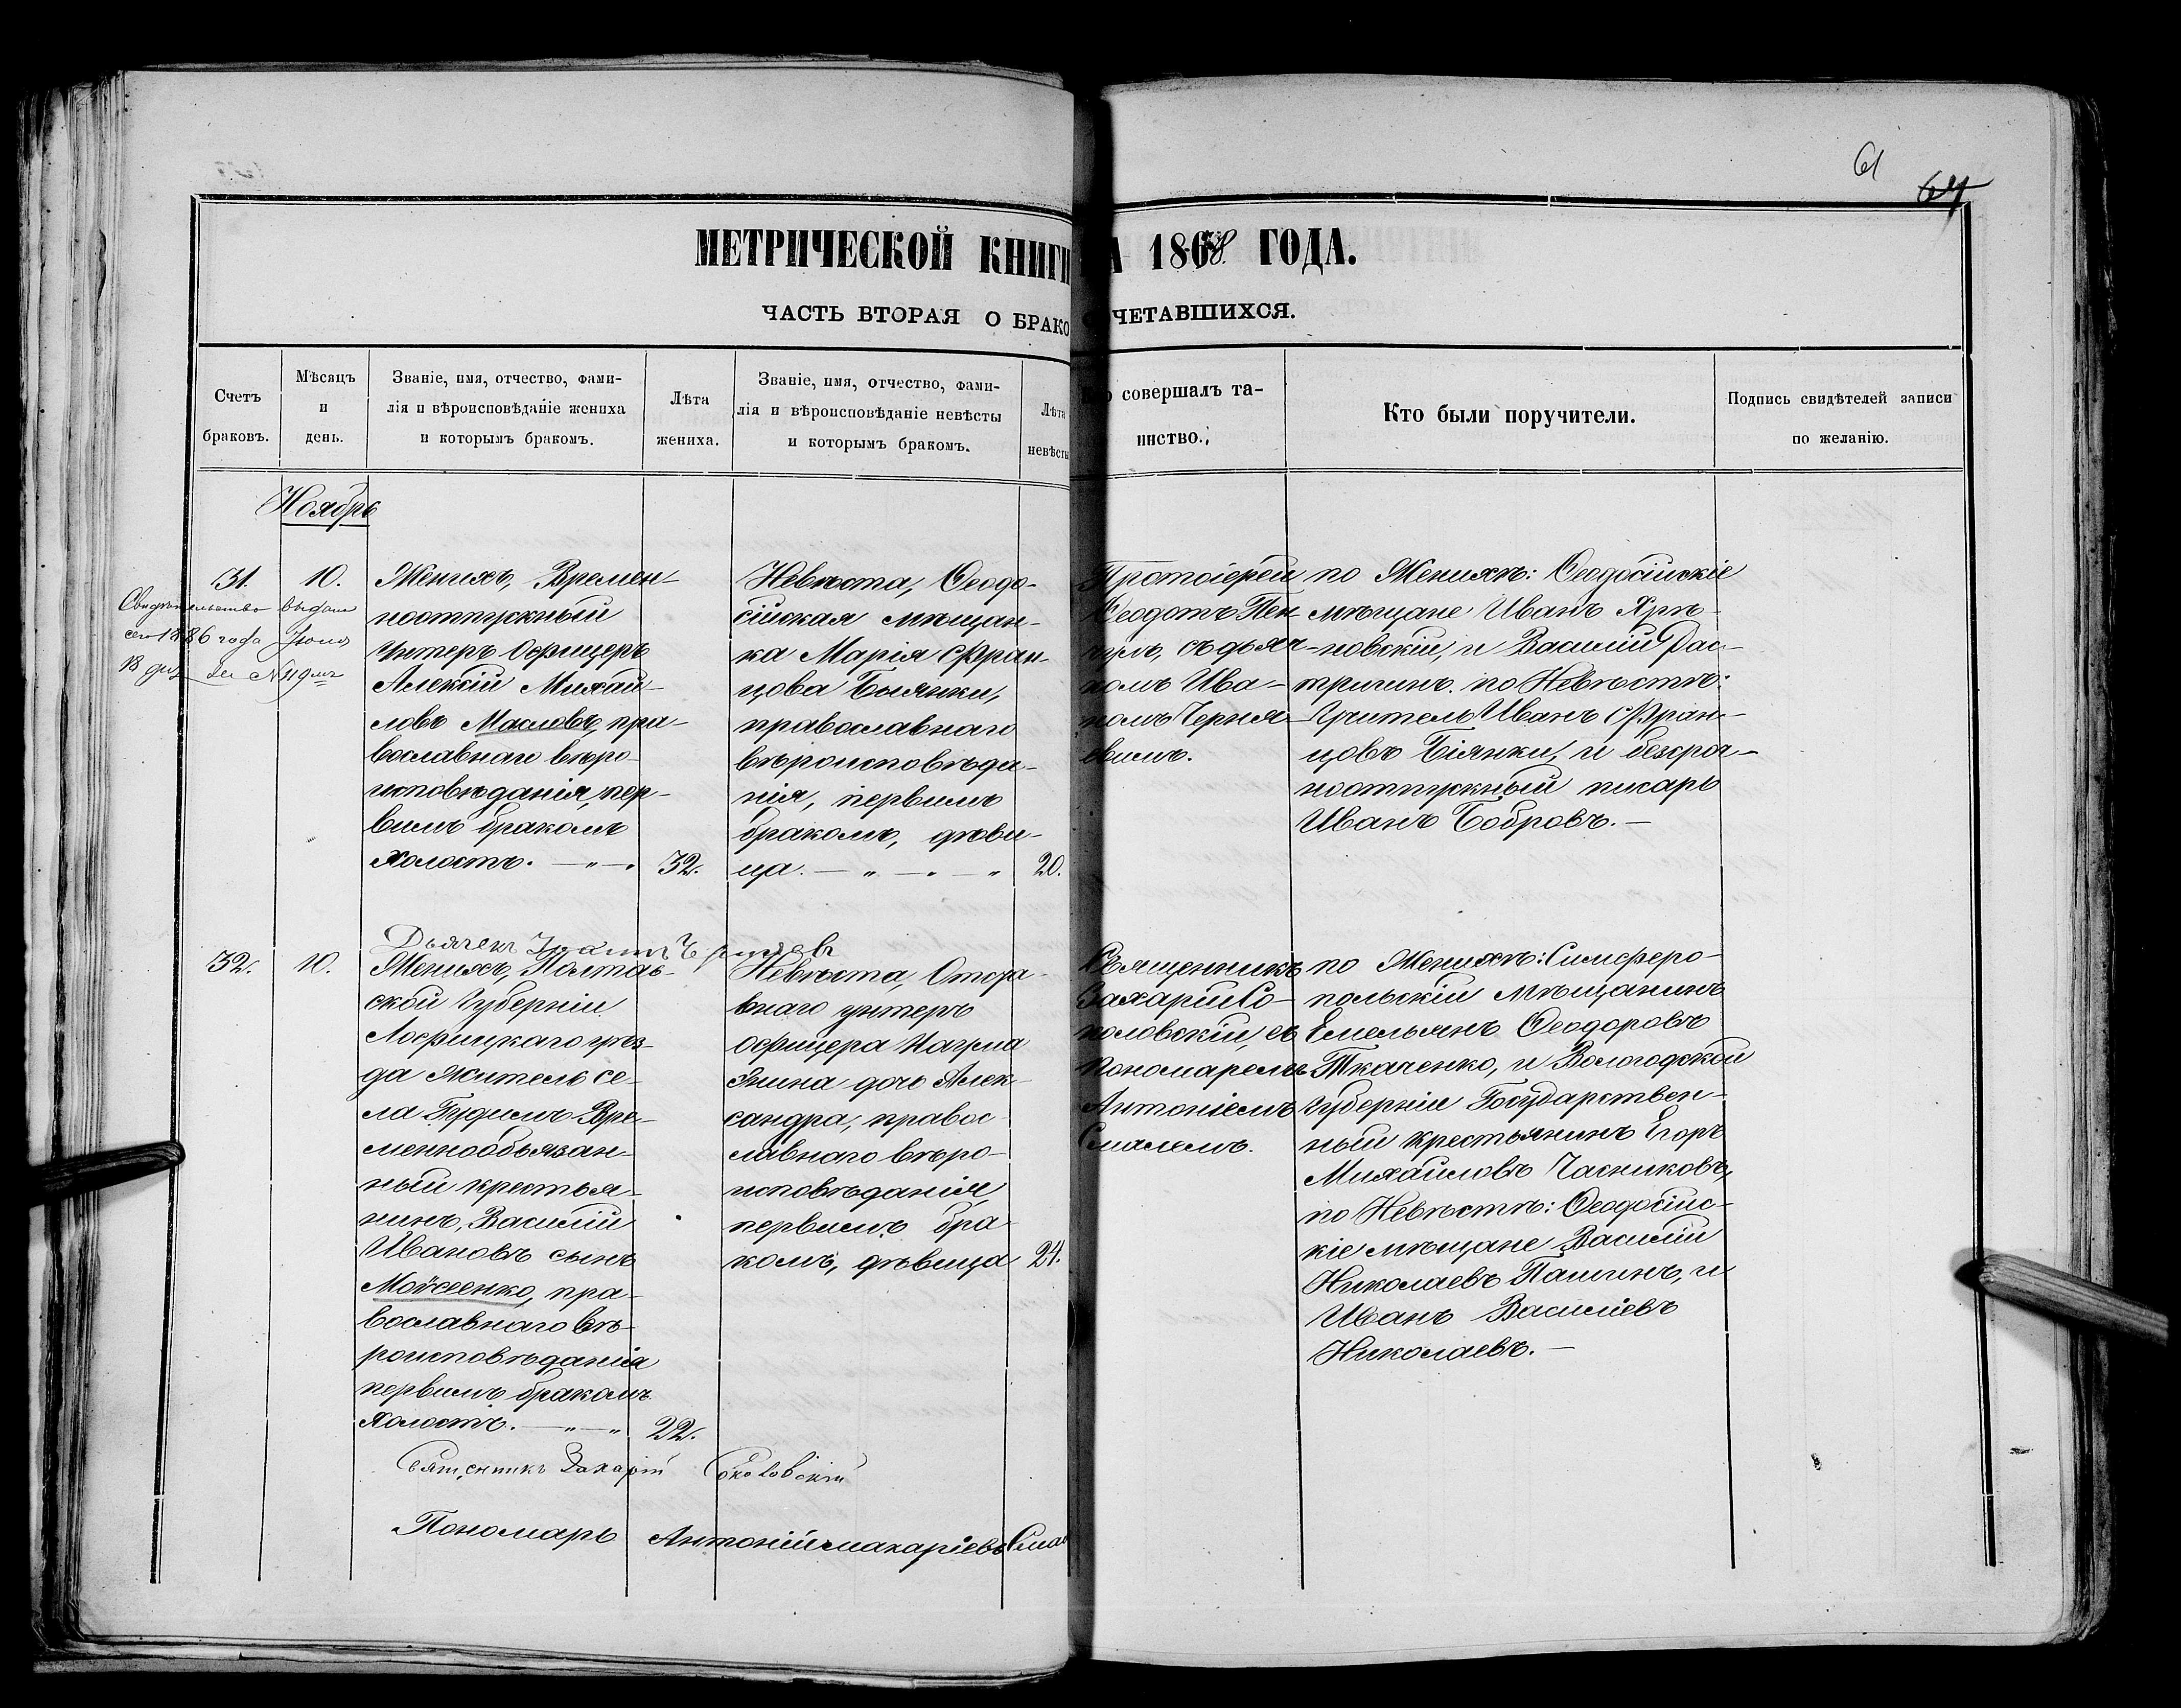 61
64
МЕТРИЧЕСКОЙ КНИГИ
А 1868. ГОДА.
ЧАСТЬ ВТОРАЯ О БРАКО
ЧЕТАВШИХСЯ.
Счетъ
браковъ.
Мѣсяцъ
и
день.
Званіе, имя, отчество, фами-
лія и вѣроисповѣданіе жениха
и которымъ бракомъ.
Лѣта
жениха.
Званіе, имя, отчество, фами-
лія и вѣроисповѣданіе невѣсты
и которымъ бракомъ.
Лѣта
невѣсты
совершалъ та-
инство.
Кто были поручители.
Подпись свидѣтелей записи
по желанію.
Ноябрь
31.
10.
Свидѣтельство выдано
сего 1886 года Іюня
18 дня за №
Женихъ, Времен-
ноотпускный
Унтеръ Офицеръ
Алексій Михаи-
ловъ Масловъ, пра-
вославнаго вѣро-
исповѣданія, пер-
вымъ бракомъ
Холостъ. — „ — „
32.
Невѣста, Ѳеодо-
сійская мѣщан-
ка Марія Фран-
цова Бьянки,
православнаго
вѣроисповѣда-
нія, первымъ
бракомъ, дѣви-
ца. — „ — „ — „
20.
Протоіерей
Ѳеодотъ
съ дьяч-
комъ Ива-
номъ Черня-
евымъ.
по Женихѣ: Ѳеодосійскіе
мѣщане Иванъ Яръ-
новскій, и Василій Рас-
тригинъ. по Невѣстѣ:
Учитель Иванъ Фран-
цовъ Біянки, и безсроч-
ноотпускный писарь
Иванъ Бобровъ. —
Дьячекъ Іоаннъ Черняевъ
32.
10.
Женихъ, Полтав-
ской Губерніи
Лохвицкаго уѣз-
да житель се-
ла Гудимъ Вре-
меннообязан-
ный крестья-
нинъ, Василій
Ивановъ сынъ
Мойсеенко, пра-
вославнаго вѣ-
роисповѣданія
первымъ бракомъ
Холостъ. — „ — „
22.
Невѣста, Отста-
внаго унтеръ
офицера Наума
дочь Алек-
сандра, правос-
лавнаго вѣро-
исповѣданія,
первымъ бра-
комъ, дѣвица
24.
Священникъ
Захарій Со-
коловскій, съ
Пономаремъ
Антоніемъ
по Женихѣ: Симферо-
польскій мѣщанинъ
Емельянъ Ѳеодоровъ
Ткаченко, и Вологодской
Губерніи Государствен-
ный крестьянинъ Егоръ
Михайловъ Часниковъ,
по Невѣстѣ: Ѳеодосійс-
кіе мѣщане Василій
Николаевъ Пашинъ, и
Иванъ Василіевъ
Николаевъ. —
Священникъ Захарій Соколовскій
Пономарь Антоній Макаріевъ